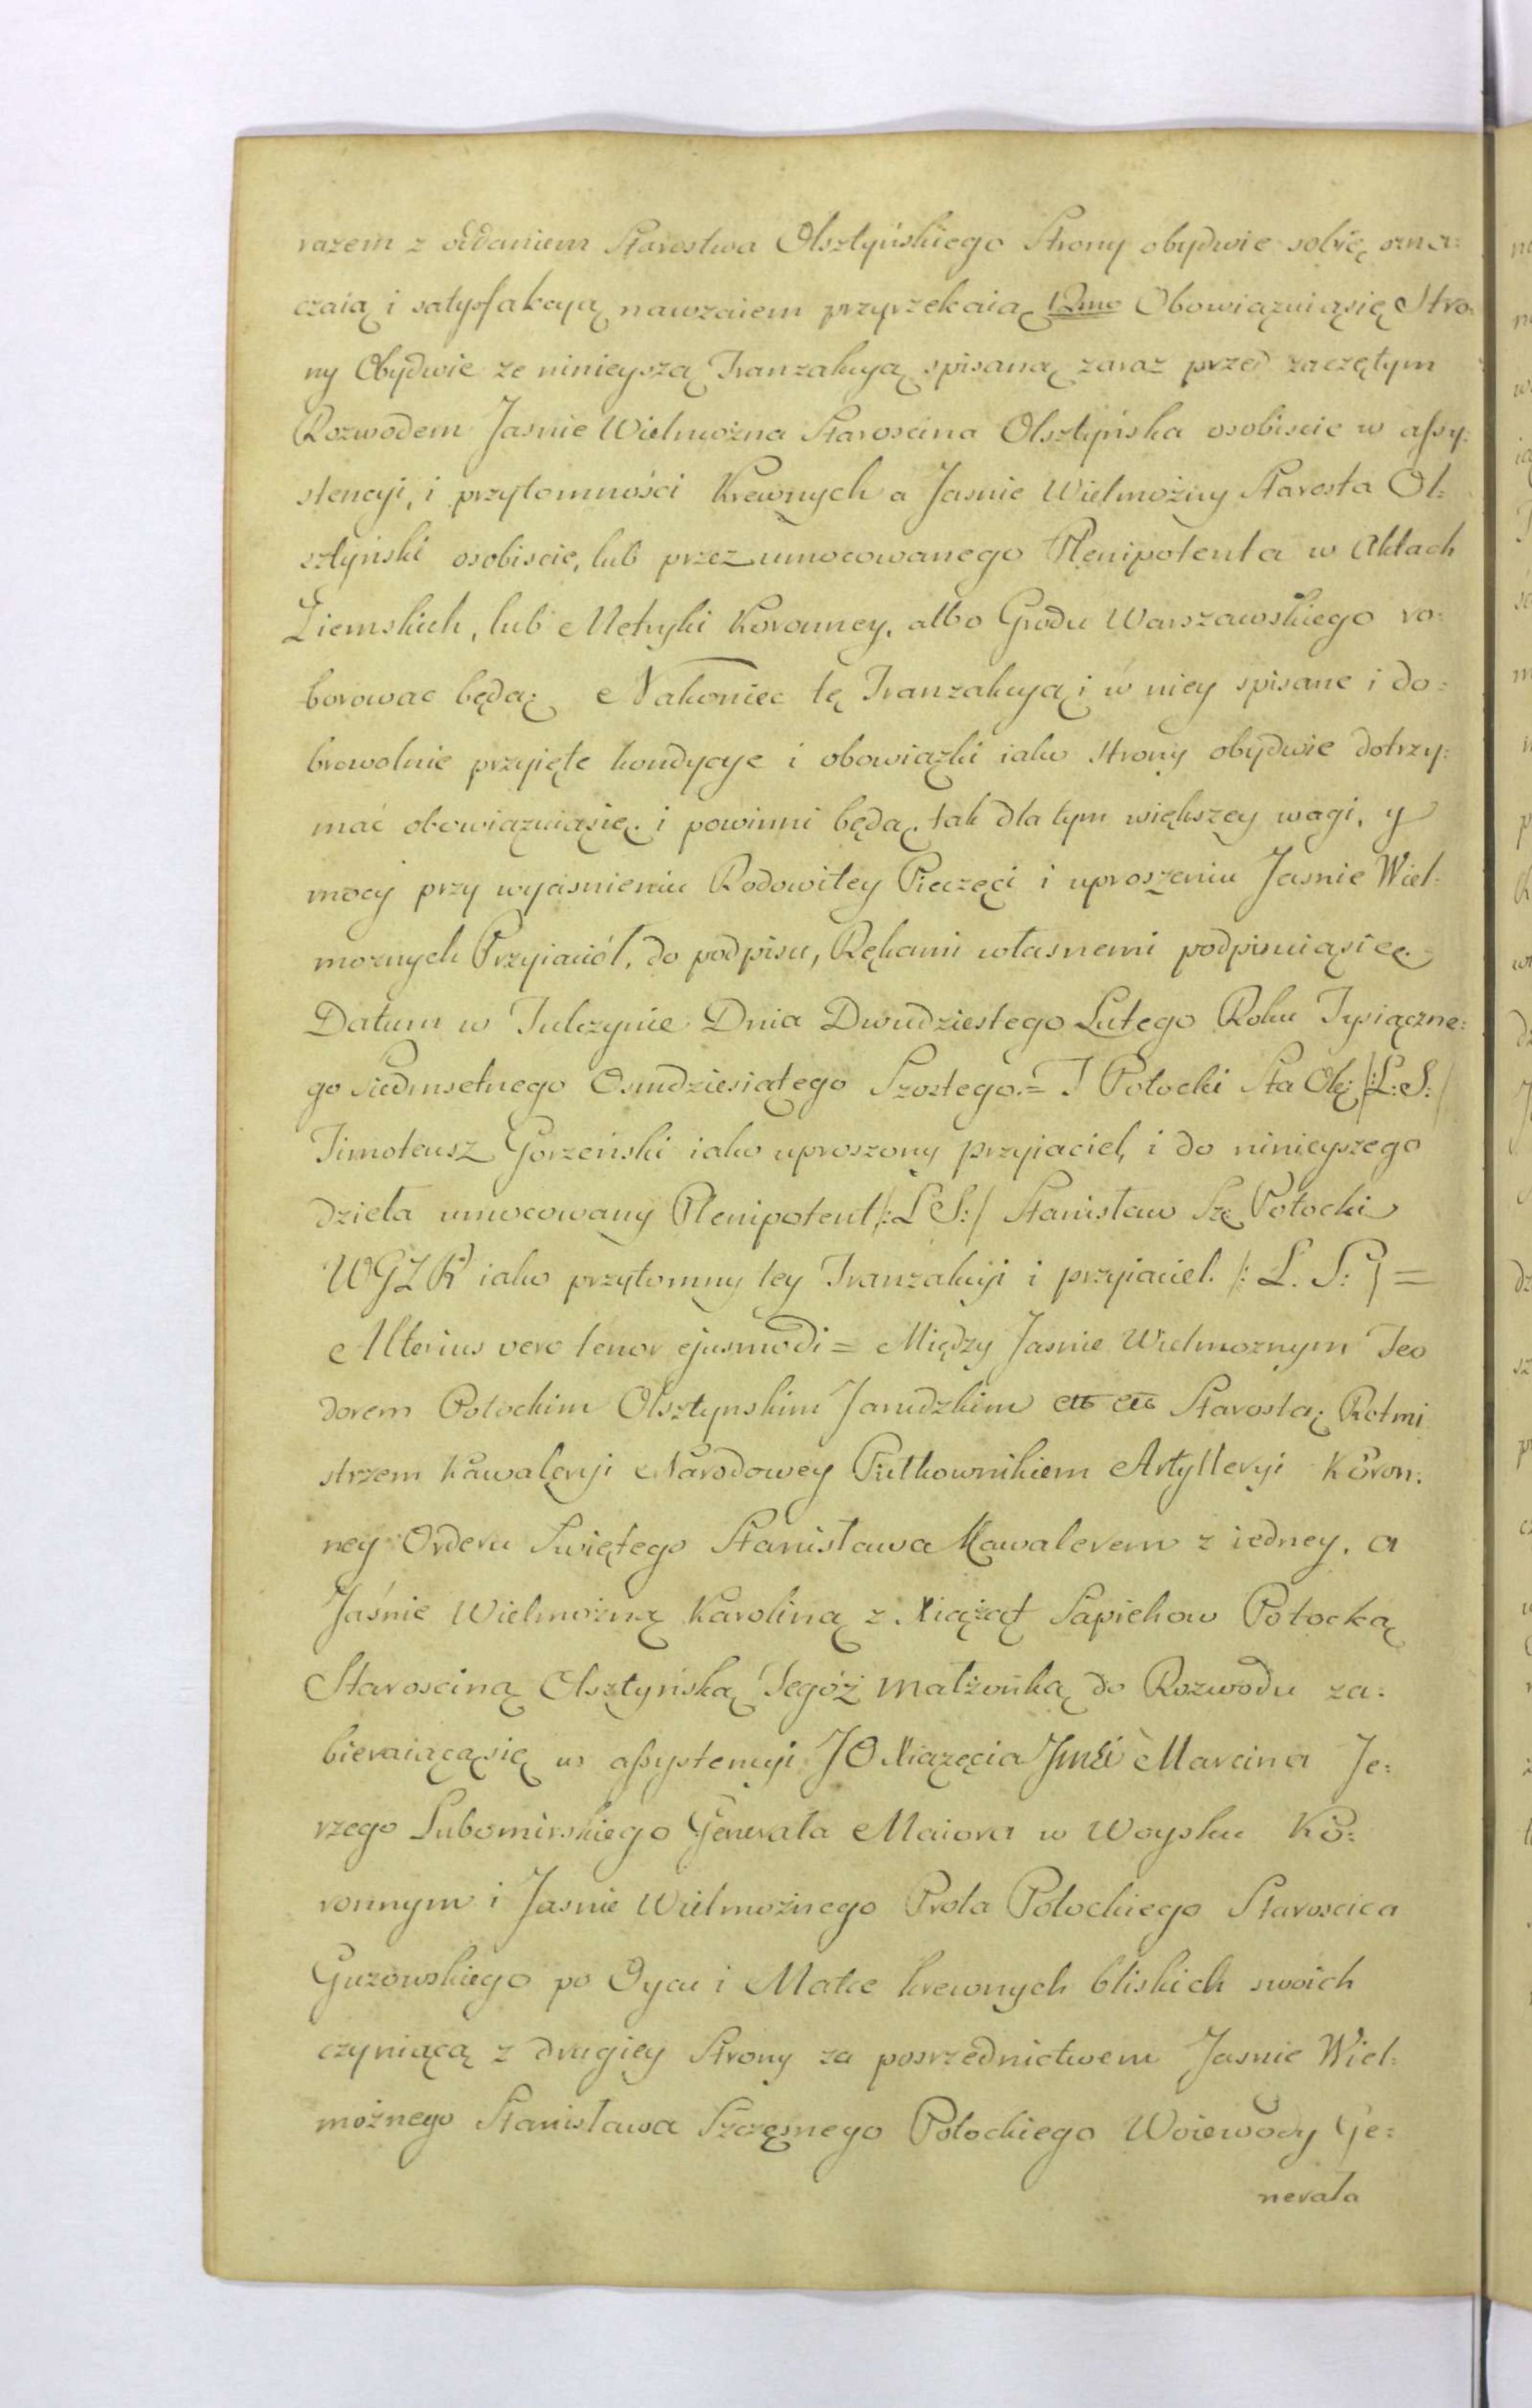 razem z oddaniem Starostwa Olsztyńskiego Strony obydwie sobie ozna:
czaią i satysfakcyą nawzaiem przyrzekaią 12mo Obowiązuiąsię Stro:
ny Obydwie ze ninieyszą Tranzakcyą spisaną zaraz przed zaczętym
Rozwodem Jasnie Wielmożna Starościna Olsztyńska osobiscie w assy:
stencyi, i przytomności Krewnych a Jasnie Wielmożny Starosta Ol:
sztyński osobiscie, lub przez umocowanego Plenipotenta w Aktach
Ziemskich, lub Metryki Koronney, albo Grodu Warszawskiego ro:
borować będą; Nakoniec tę Tranzakcyą i w niey spisane i do:
browolnie przyięte kondycye i obowiązki iako Strony obydwie dotrzy:
mać obowiązuiąsię. i powinni będą, tak dla tym większey wagi, y
mocy przy wyciśnieniu Rodowitey Pieczęci i uproszeniu Jasnie Wiel:
możnych Przyiaciół, do podpisu, Rękami własnemi podpisuiąsię.
Datum w Tulczynie Dnia Dwudziestego Lutego Roku Tysiączne:
go siedmsetnego Osmdziesiątego Szostego.= T Potocki Sta Ol: /:L:S:/
Timoteusz Gorzeński iako uproszony przyiaciel, i do ninieyszego
dzieła umocowany Plenipotent /:L S:/ Stanisław Szę Potocki
WGZR iako przytomny tey Tranzakcyi i przyiaciel. /: L. S:/ =
Alterius vero tenor ejusmodi = Między Jasnie Wielmożnym Teo
dorem Potockim Olsztynskim Jarudzkim etc etc Starostą; Rotmi
strzem Kawaleryi Narodowey Pułkownikiem Artylleryi Koron:
ney Orderu Swiętego Stanisława Kawalerem z iedney, a
Jaśnie Wielmożną Karoliną z Xiążąt Sapiehow Potocką
Starosciną Olsztyńską Tegóż Małżonką do Rozwodu za:
bieraiącąsię w assystencyi JO Xiązęcia Jmći Marcina Je:
rzego Lubomirskiego Generała Maiora w Woysku Ko:
ronnym i Jasnie Wielmożnego Prota Potockiego Staroscica
Guzowskiego po Oycu i Matce krewnych bliskich swoich
czyniącą z drugiey Strony za posrzednictwem Jasnie Wiel:
możnego Stanisława Szczęsnego Potockiego Woiewody Ge:
nerała